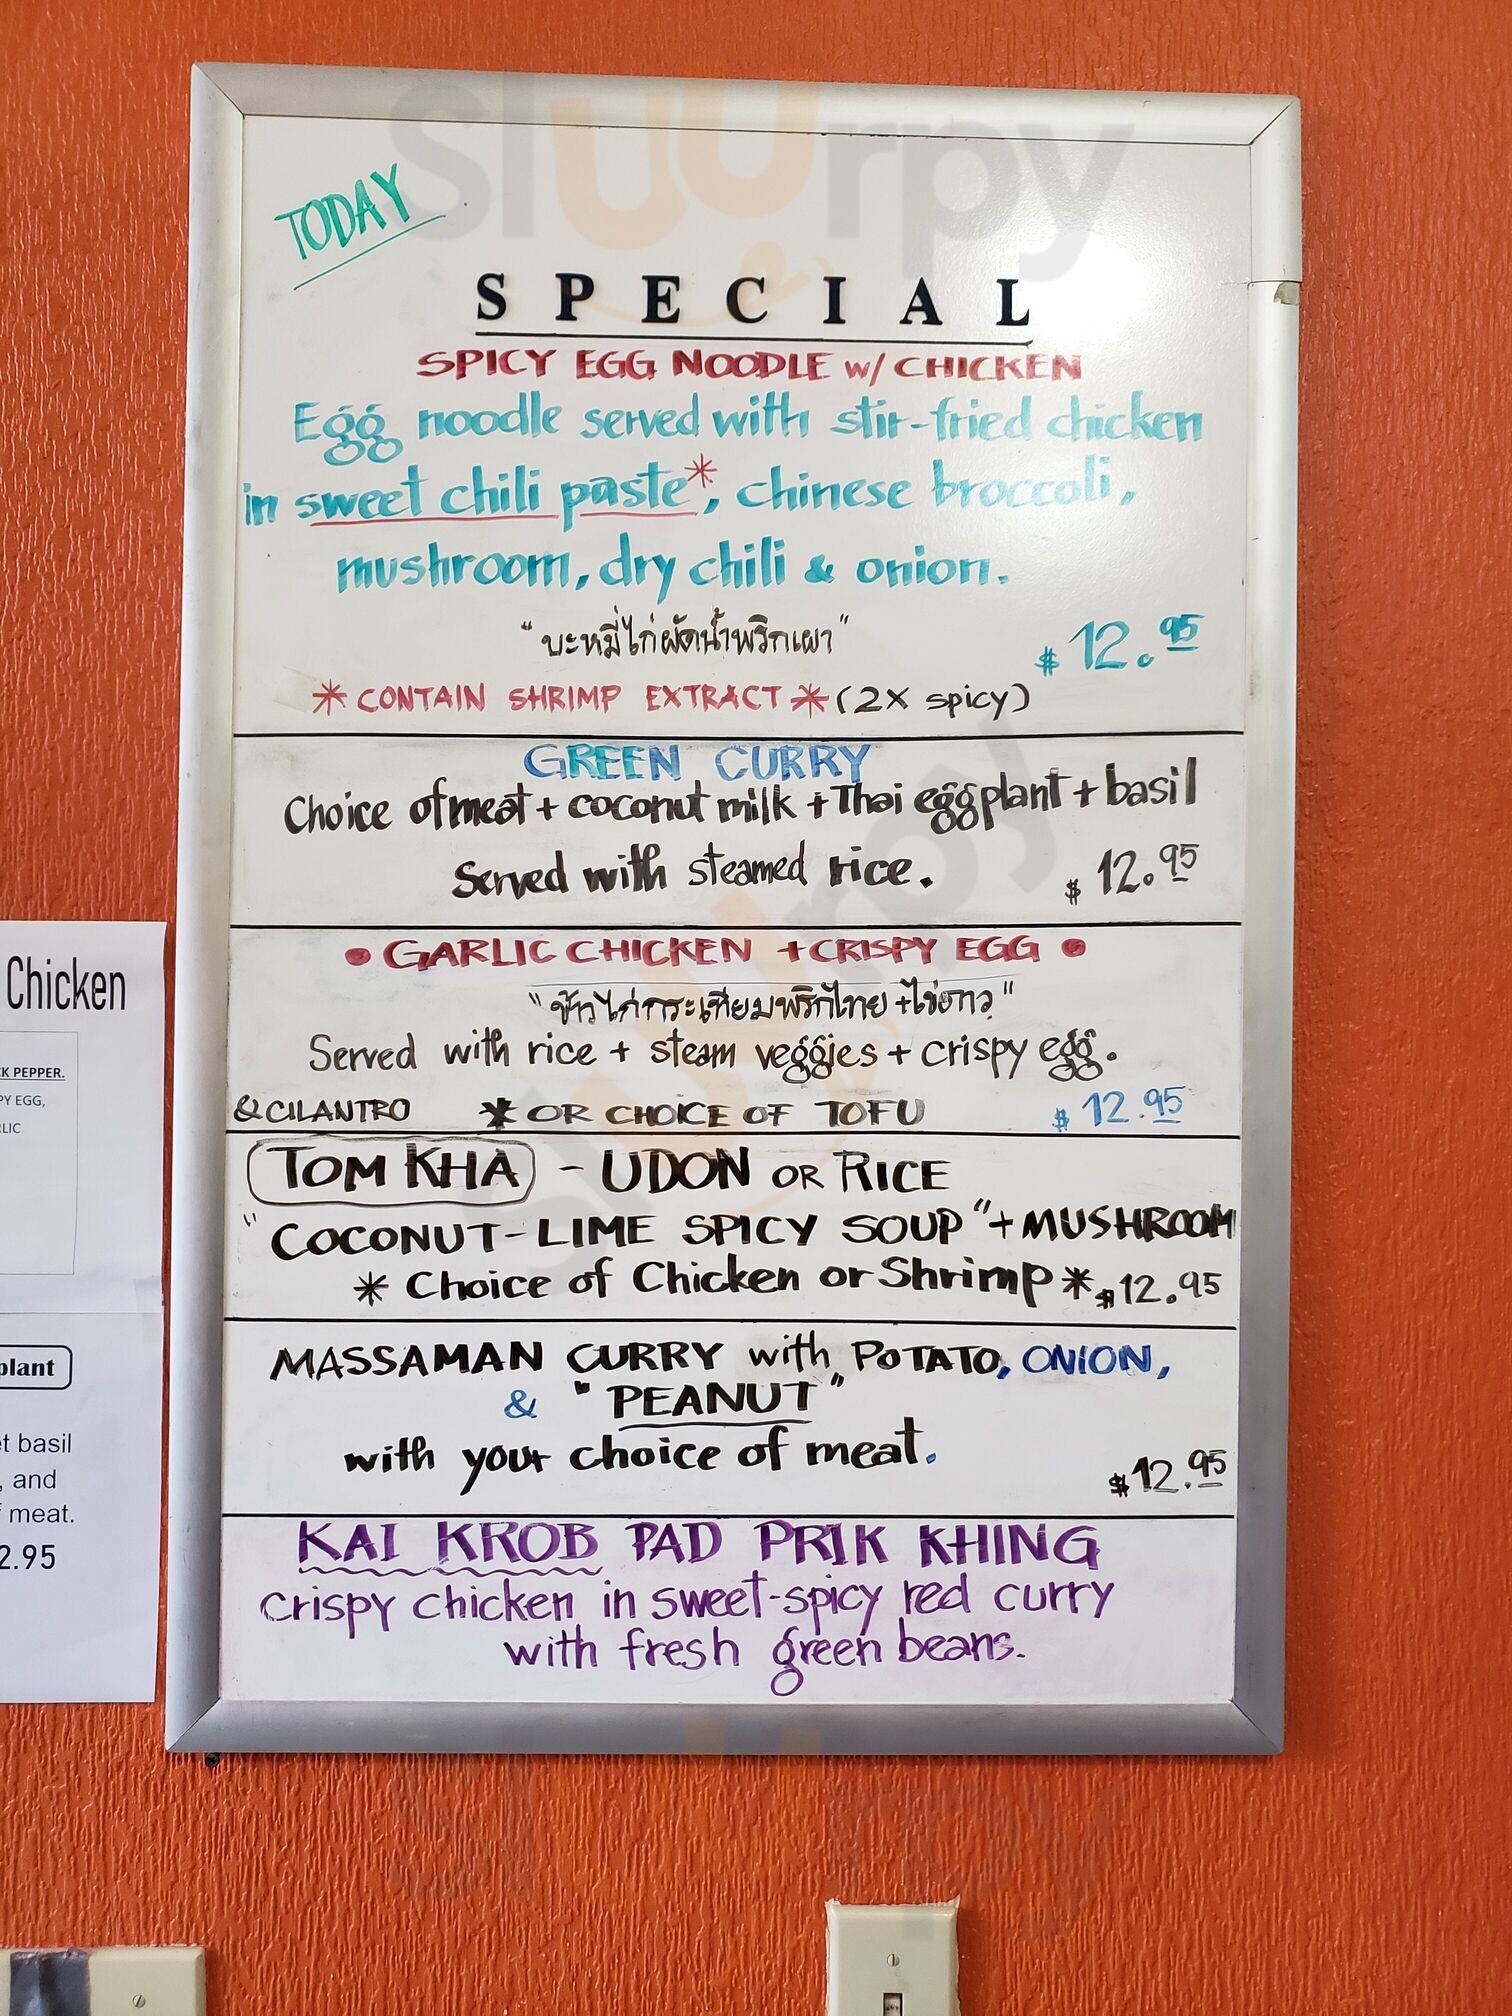 sluurpy
TODAY
SPECIAL
SPICY EGG NOODLE w/ CHICKEN
Egg noodle served with stir-fried chicken
in sweet chili paste*, chinese broccoli,
mushroom, dry chili & onion.
"บะหมี่ไก่ผัดน้ำพริกเผา"
$12.95
* CONTAIN SHRIMP EXTRACT * (2X spicy)
GREEN CURRY
Choice of meat + coconut milk + Thai eggplant + basil
Served with steamed rice. $12.95
• GARLIC CHICKEN + CRISPY EGG •
"ข้าวไก่กระเทียมพริกไทย +ไข่ดาว"
Served with rice + steam veggies + crispy egg.
& CILANTRO * OR CHOICE OF TOFU $12.95
TOM KHA - UDON OR RICE
"COCONUT-LIME SPICY SOUP" + MUSHROOM
* Choice of Chicken or Shrimp * $12.95
MASSAMAN CURRY with POTATO, ONION,
& "PEANUT"
with your choice of meat.
$12.95
KAI KROB PAD PRIK KHING
crispy chicken in sweet-spicy red curry
with fresh green beans.
Chicken
CK PEPPER.
PY EGG,
RLIC
plant
et basil
, and
f meat.
2.95
sluurpy